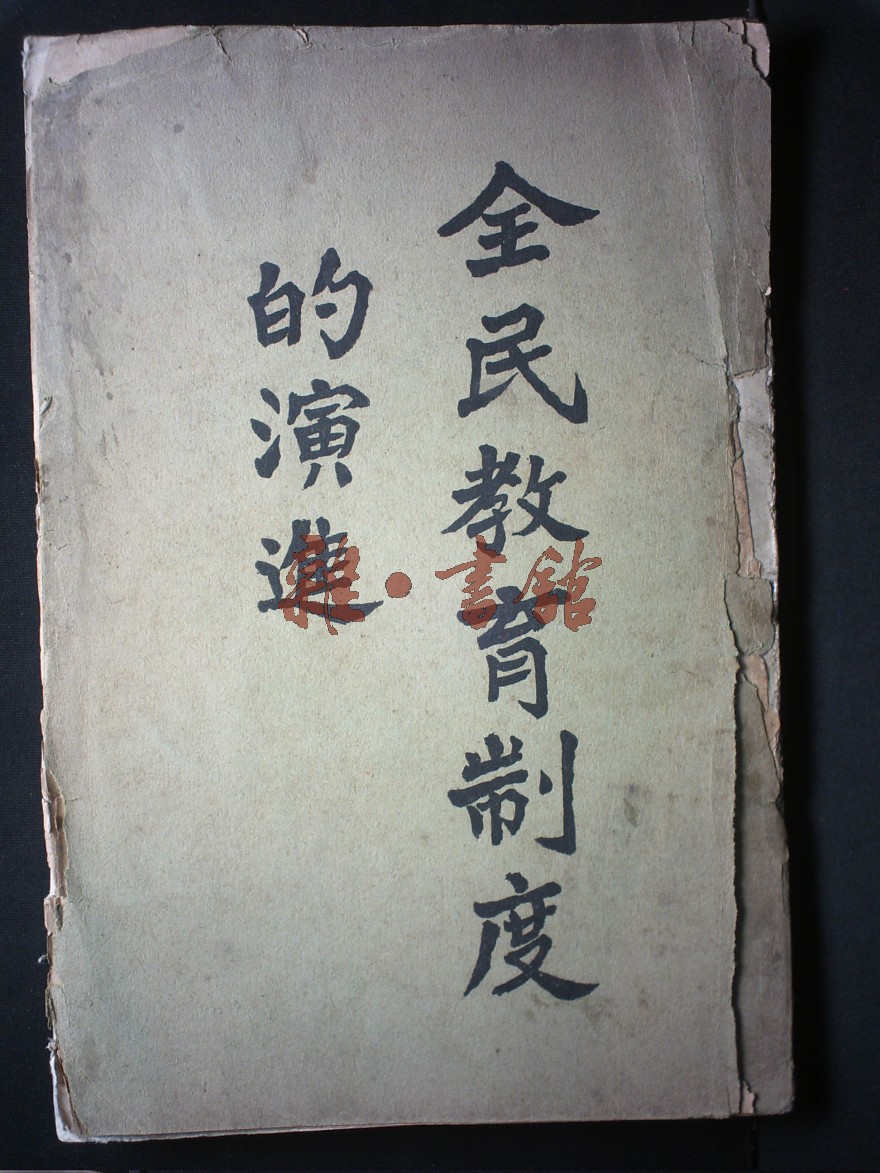 全民教育制度
的演進
雜·書館